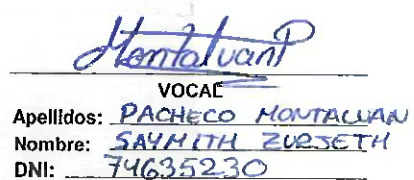 MontalvanP
VOCAL
Apellidos: PACHECO MONTALVAN
Nombre: SAYMITH ZURSETH
DNI: 74635230